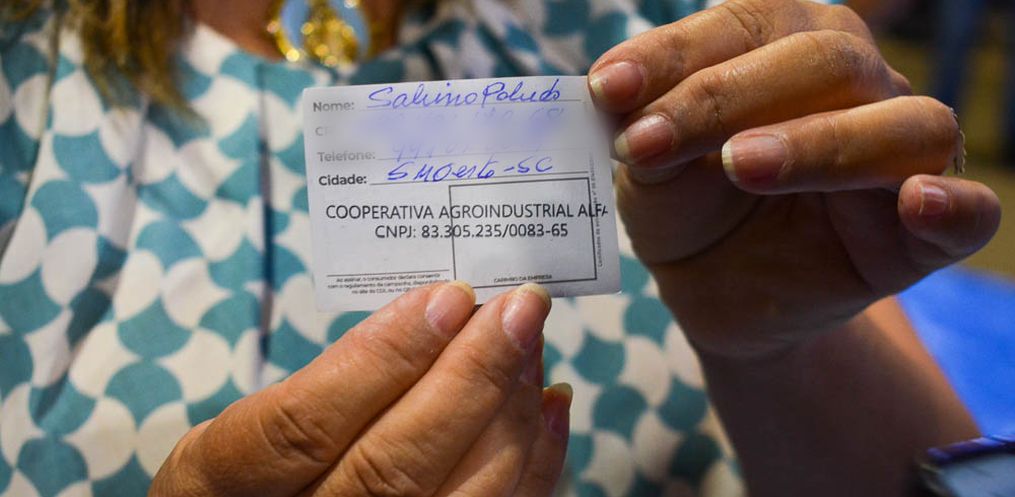 Nome: Salvino Poludo
CP
Telefone:
Cidade: SMOeste-SC
COOPERATIVA AGROINDUSTRIAL ALFA
CNPJ: 83.305.235/0083-65
Ao assinar, o consumidor declara consentir
com o regulamento da campanha, disponibilizado
no site da CDL ou no
CARIMBO DA EMPRESA